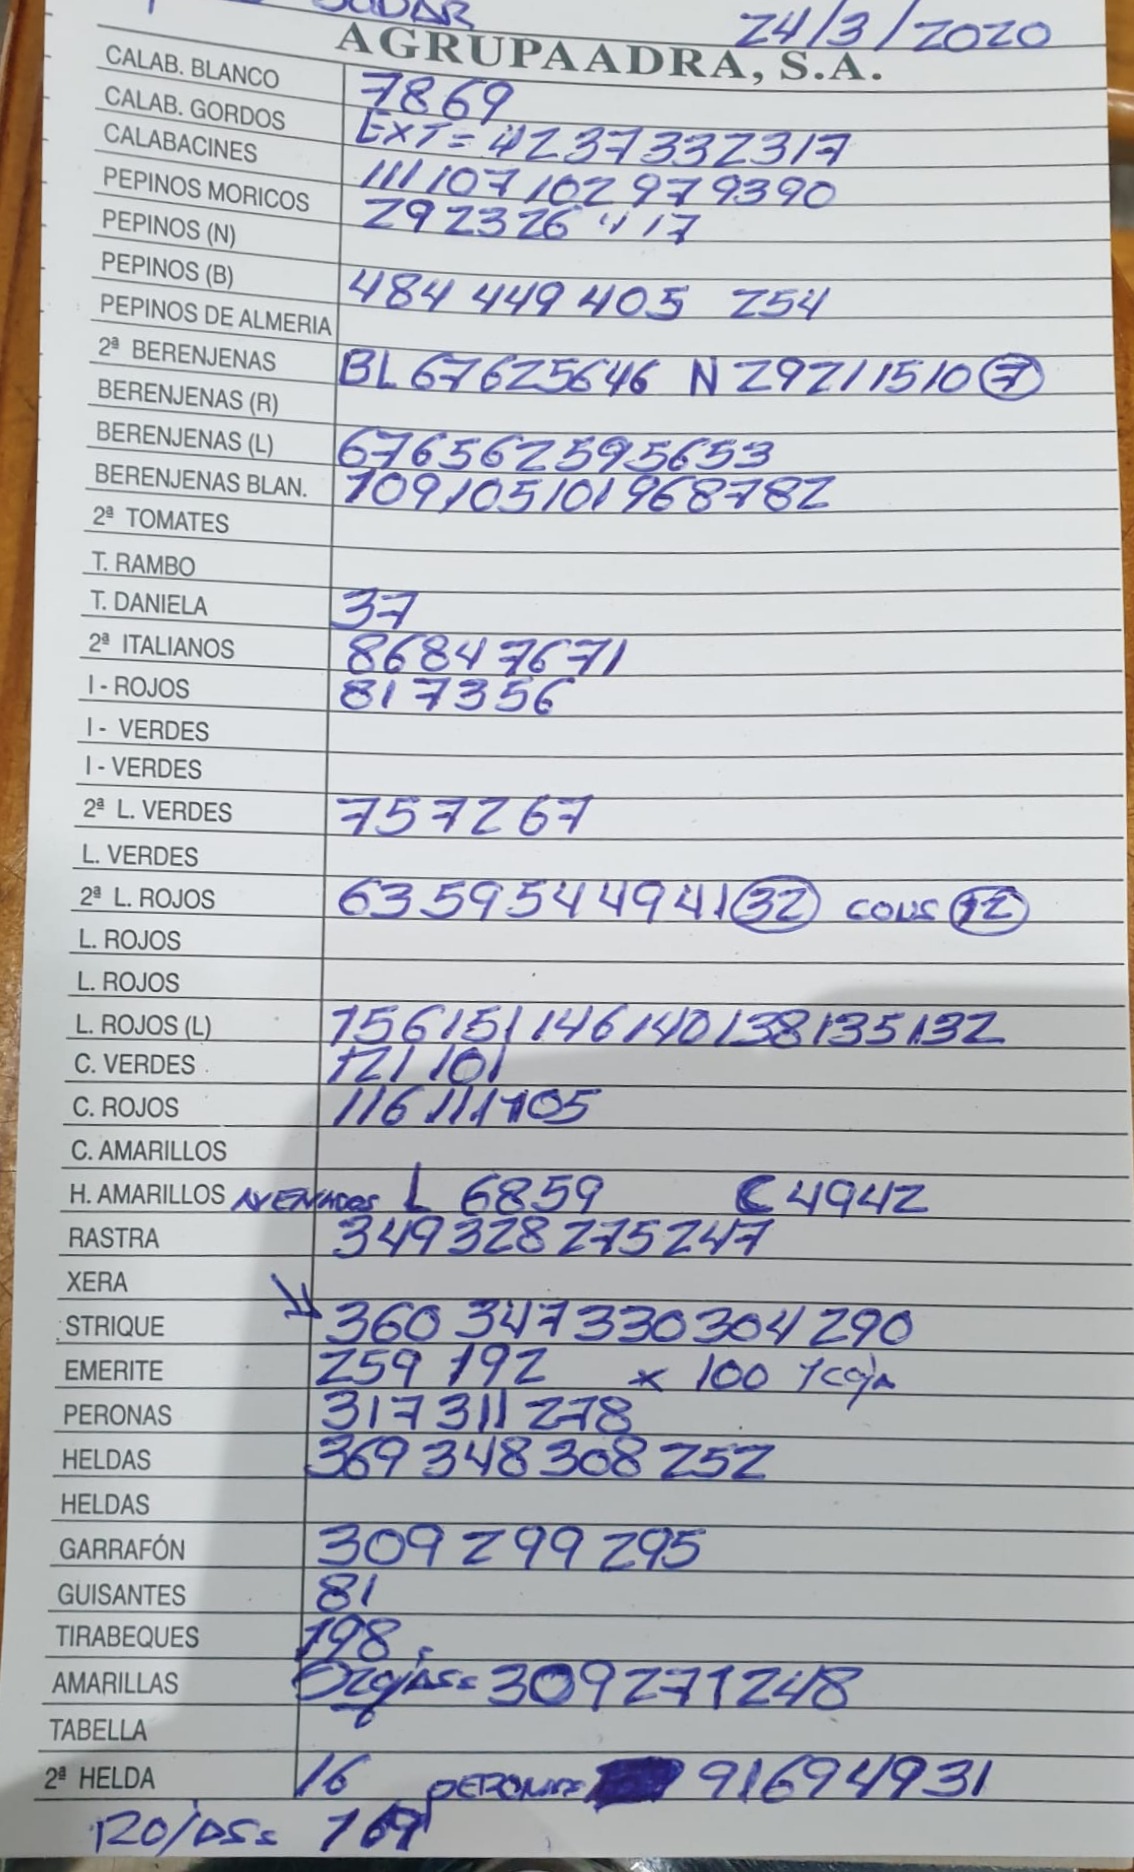 24/3/2020
AGRUPAADRA, S.A.
CALAB. BLANCO 7869
CALAB. GORDOS EXT= 4237332317
CALABACINES 111107102979390
PEPINOS MORICOS 292326 " 17
PEPINOS (N)
PEPINOS (B) 484 449 405 254
PEPINOS DE ALMERIA
2ª BERENJENAS BL 67625646 N 29211510 7
BERENJENAS (R)
BERENJENAS (L) 676562595653
BERENJENAS BLAN. 109105101968782
2ª TOMATES
T. RAMBO
T. DANIELA 37
2ª ITALIANOS 86847671
I - ROJOS 817356
I - VERDES
I - VERDES
2ª L. VERDES 757267
L. VERDES
2ª L. ROJOS 635954494132 CONS 12
L. ROJOS
L. ROJOS
L. ROJOS (L) 156151146140138135132
C. VERDES 121 101
C. ROJOS 116111105
C. AMARILLOS
H. AMARILLOS L 6859 C 4942
RASTRA 349328275247
XERA
STRIQUE 360 347330304290
EMERITE 259 192 x 100
PERONAS 317311278
HELDAS 369348308252
HELDAS
GARRAFÓN 309299295
GUISANTES 81
TIRABEQUES 198
AMARILLAS 309271248
TABELLA
2ª HELDA 16 91694931